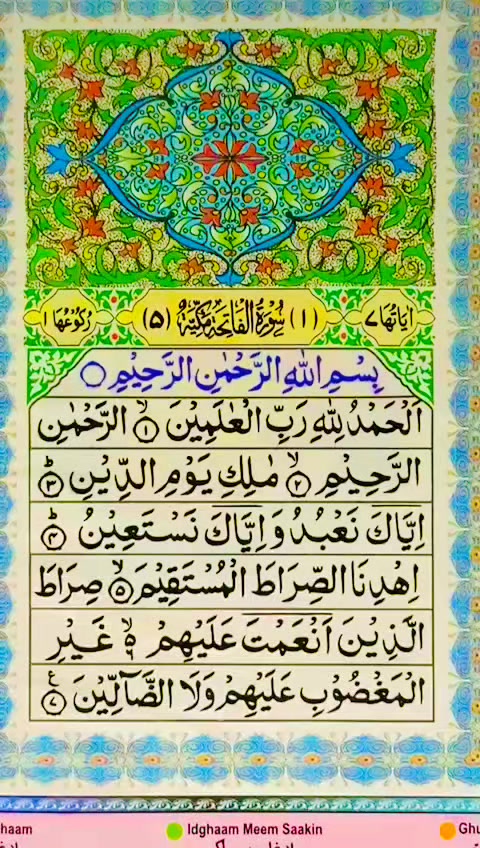 اٰيَاتُهَا ٧ (١) سُوْرَةُ الْفَاتِحَةِ مَكِّيَّةٌ (٥) رُكُوْعُهَا ١
بِسْمِ اللّٰهِ الرَّحْمٰنِ الرَّحِيْمِ ۝
اَلْحَمْدُ لِلّٰهِ رَبِّ الْعٰلَمِيْنَ ۙ‏﴿١﴾ الرَّحْمٰنِ
الرَّحِيْمِ ۙ‏﴿٢﴾ مٰلِكِ يَوْمِ الدِّيْنِ ؕ‏﴿٣﴾
اِيَّاكَ نَعْبُدُ وَ اِيَّاكَ نَسْتَعِيْنُ ؕ‏﴿٤﴾
اِهْدِنَا الصِّرَاطَ الْمُسْتَقِيْمَ ۙ‏﴿٥﴾ صِرَاطَ
الَّذِيْنَ اَنْعَمْتَ عَلَيْهِمْ ۙ۬ ٦ غَيْرِ
الْمَغْضُوْبِ عَلَيْهِمْ وَلَا الضَّآلِّيْنَ ﴿٧﴾ ع
haam Idghaam Meem Saakin Ghu